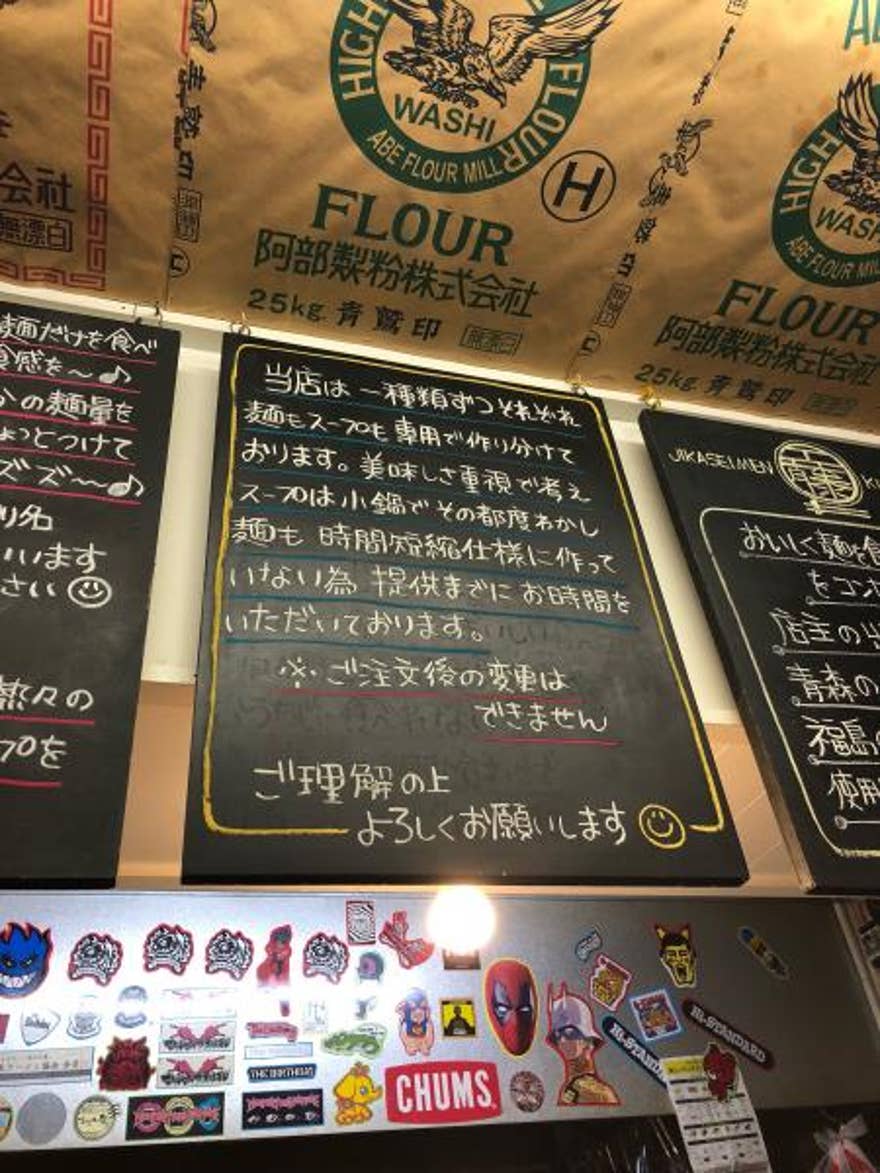 HIGH
FLOUR
WASHI
ABE FLOUR MILL
H
FLOUR
阿部製粉株式会社
25kg 青鷲印
無漂白
会社
無漂白
HIGH
WASHI
ABE FLOUR MILL
FLOUR
阿部製粉株式会社
25kg 青鷲印
麺だけを食べ
食感を〜♪
の麺量を
ょっとつけて
ズズ〜♪
り名
います
さい
々の
プを
当店は 一種類ずつそれぞれ
麺もスープも専用で作り分けて
おります。美味しさ重視で考え
スープは小鍋でその都度わかし
麺も 時間短縮仕様に作って
いない為 提供までにお時間を
いただいております。
※ご注文後の変更は
できません
ご理解の上
よろしくお願いします
JIKASEIMEN
おいしく麺を食
をコン
店主の出
青森の
福島の
使用
THE BIRTHDAY
CHUMS
Hi-STANDA
Hi-STANDARD